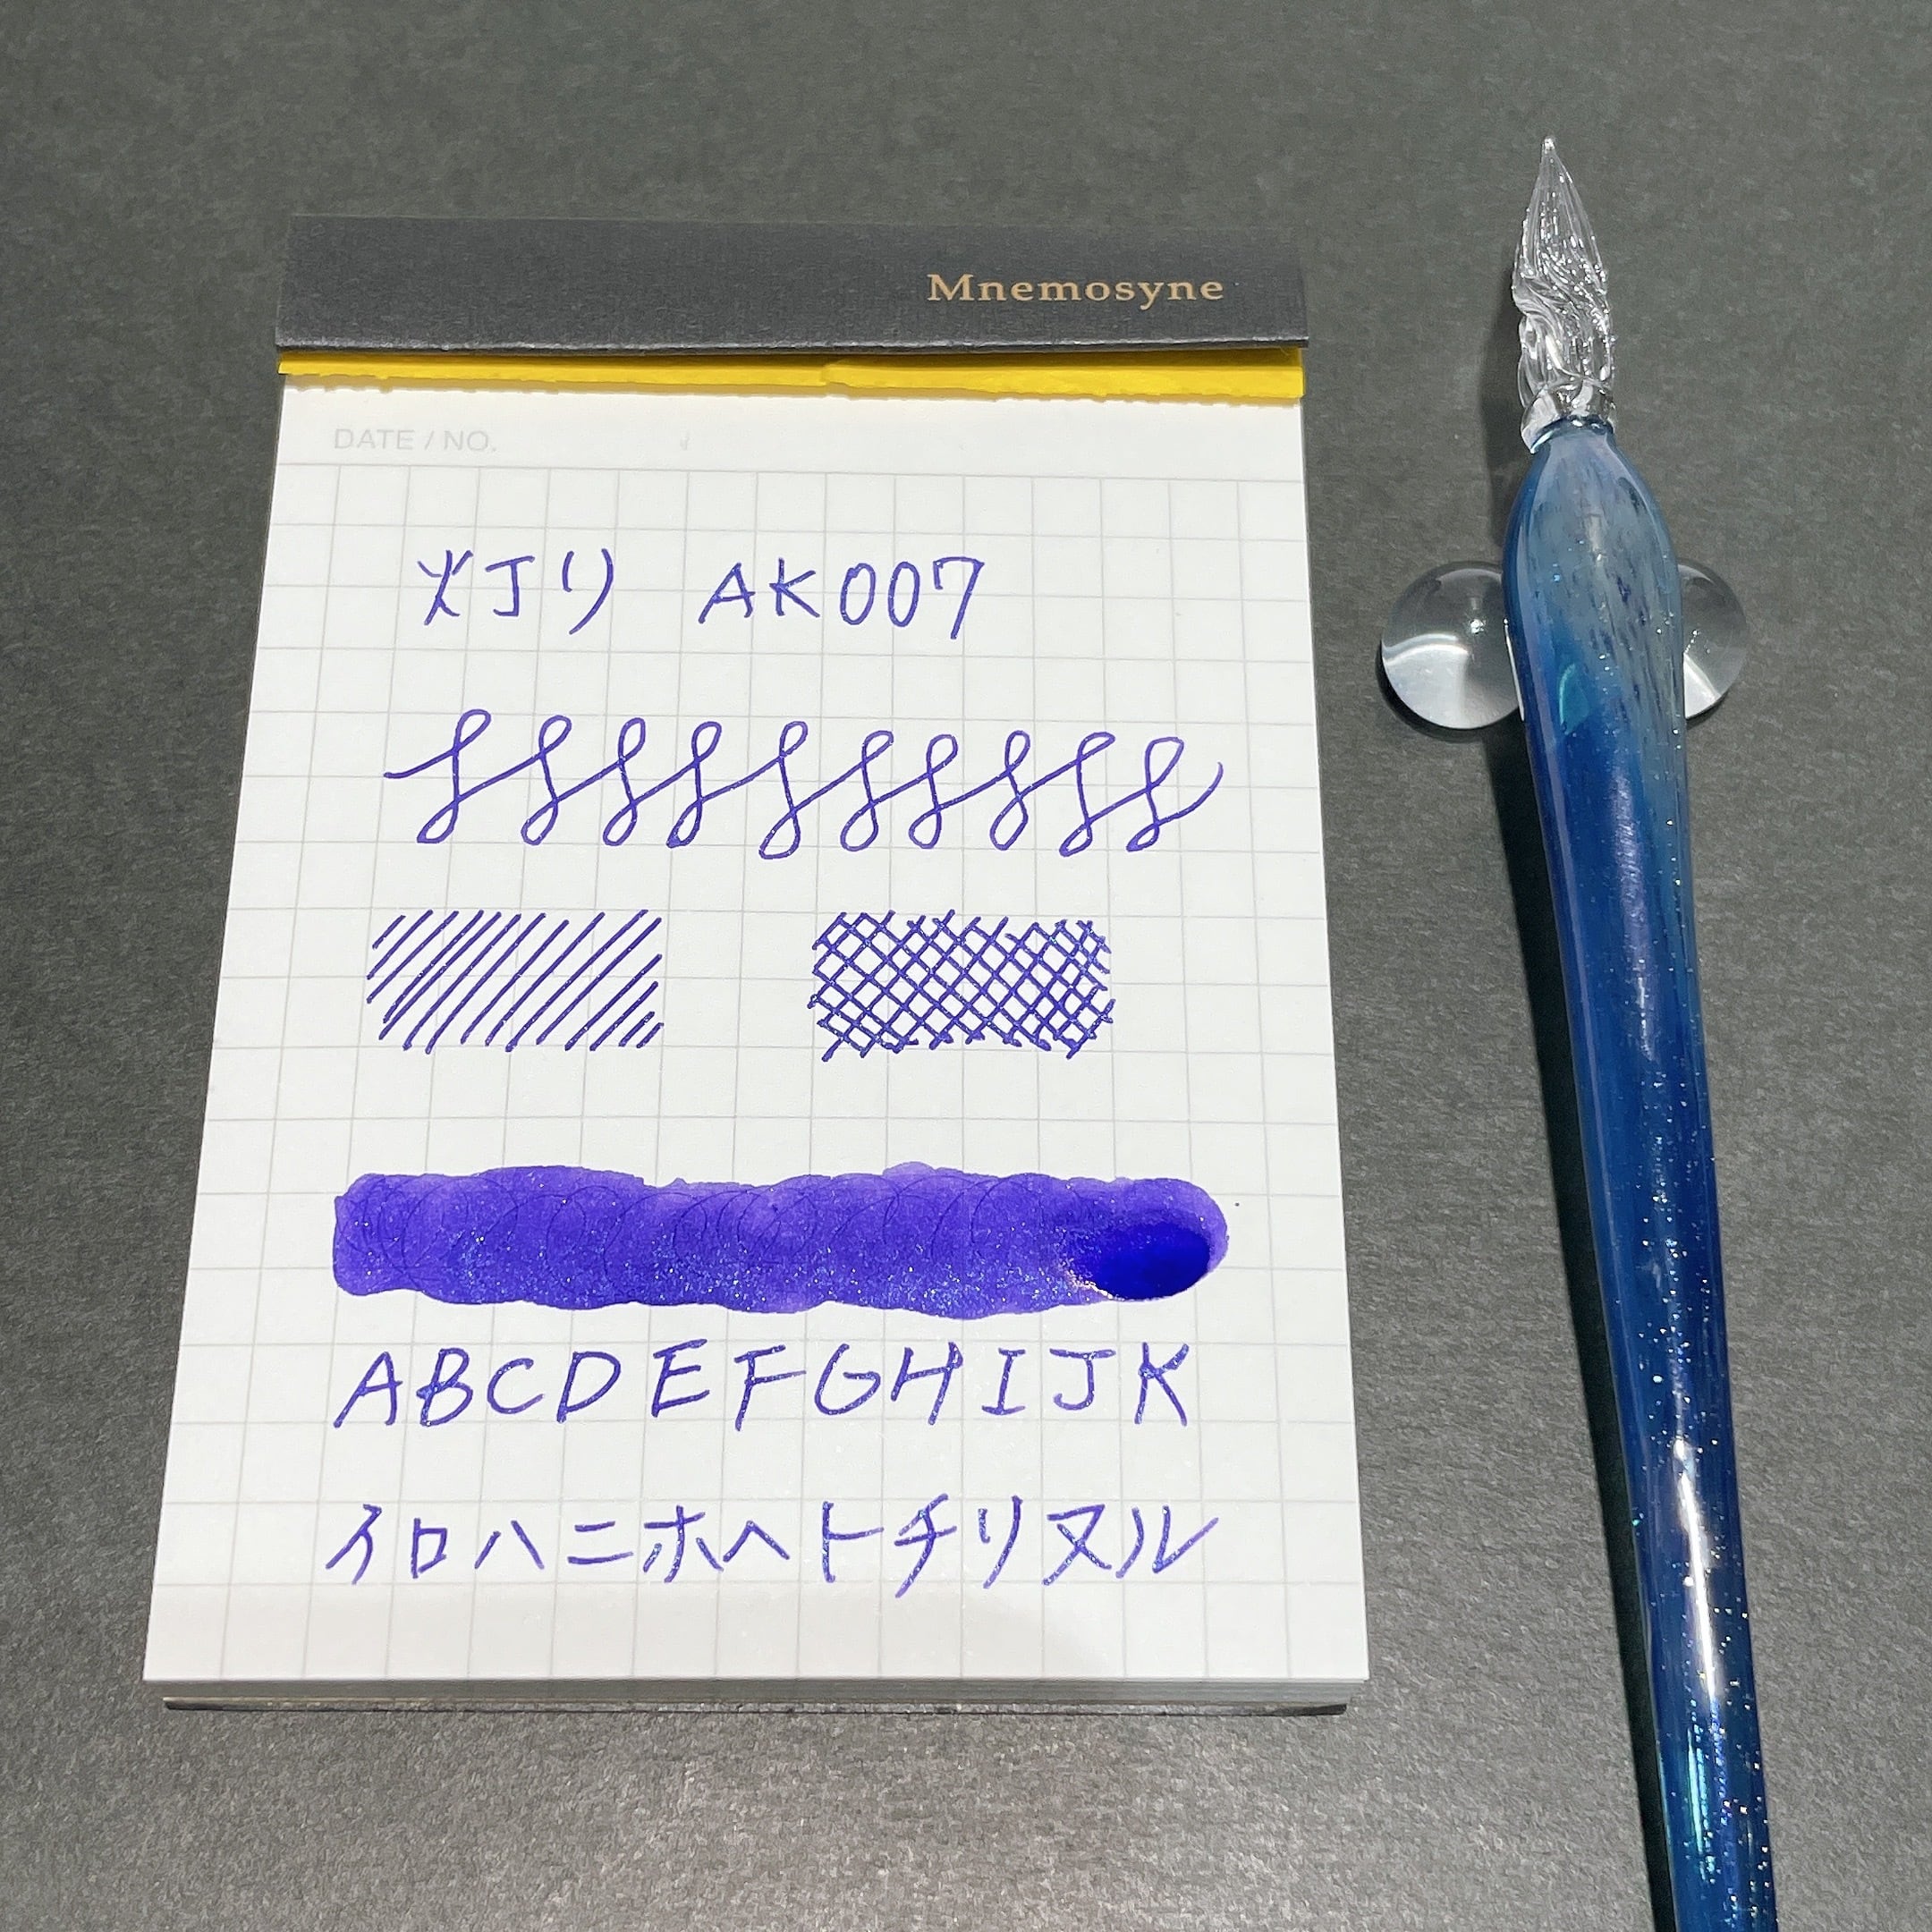 Mnemosyne
DATE / NO.
灯り AK007
ABCDEFGHIJK
イロハニホヘトチリヌル